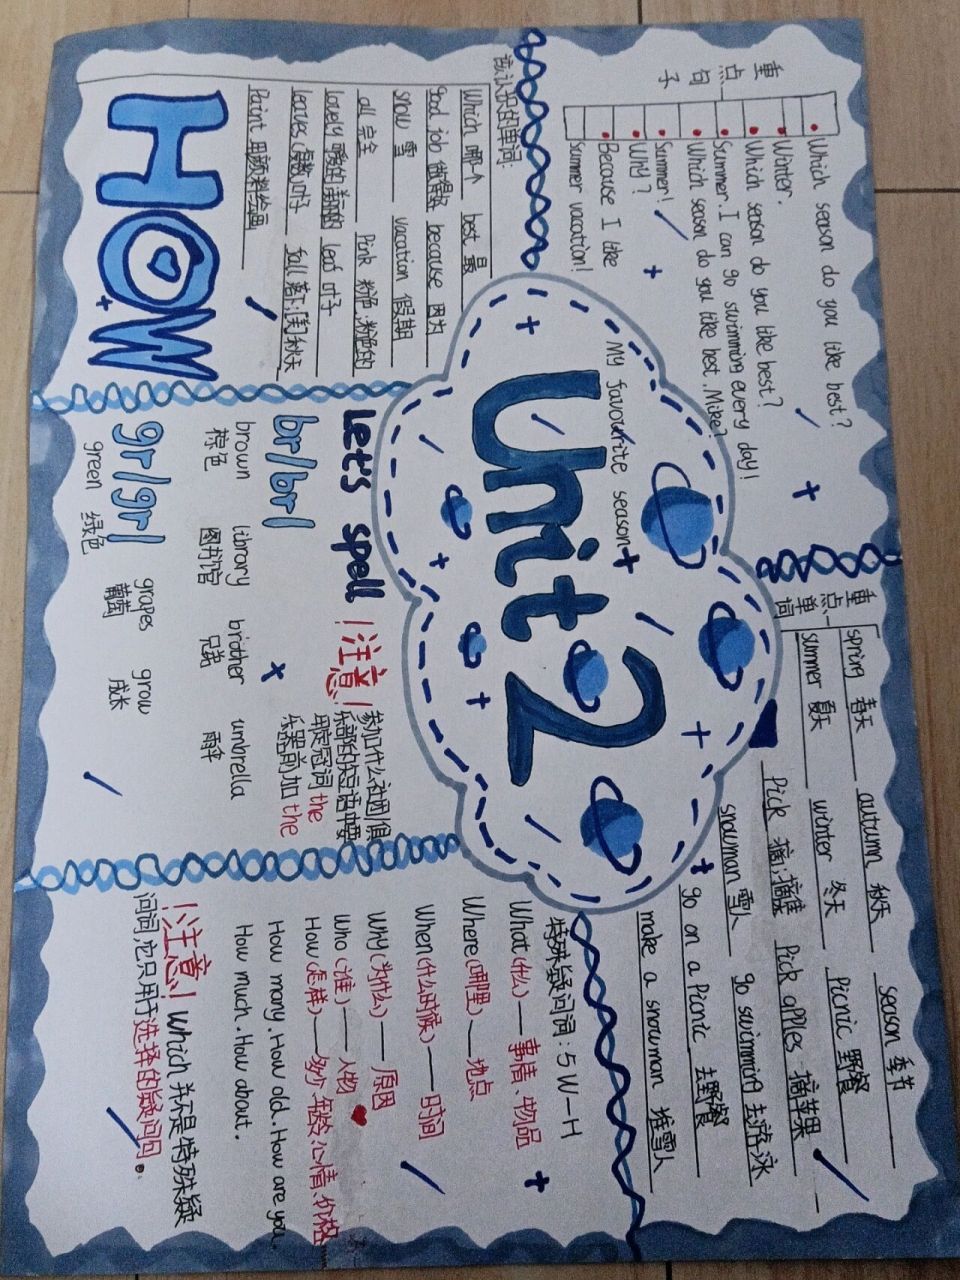 重点句子
Which season do you like best?
Winter.
Which season do you like best?
Summer. I can go swimming every day!
Which season do you like best, Mike?
Summer!
Why?
Because I like
summer vacation!
该认识的单词:
Which 哪一个 best 最
good job 做得好 because 因为
snow 雪 vacation 假期
all 完全 Pink 粉色;粉色的
lovely 可爱的;美丽的 leaf 叶子
leaves (复数)叶子 fall 落下;[美]秋天
Paint 用颜料绘画
HOW
Unit 2
My favourite season
重点单词
spring 春天 autumn 秋天 season 季节
summer 夏天 winter 冬天 Picnic 野餐
Pick 摘;摘集 Pick apples 摘苹果
snowman 雪人 go swimming 去游泳
go on a Picnic 去野餐
make a snowman 堆雪人
Let's spell
br/br/
brown library brother umbrella
棕色 图书馆 兄弟 雨伞
gr/gr/
green grapes grow
绿色 葡萄 成长
!注意!
参加什么社团/俱
乐部的短语中要
用定冠词the
乐器前加the
特殊疑问词:5W-H
What(什么)——事情、物品
Where(哪里)——地点
When(什么时候)——时间
Why(为什么)——原因
Who(谁)——人物
How(怎样)——多少、年龄、心情、价格
How many. How old. How are you.
How much. How about.
!注意! which 并不是特殊疑
问词,它只用于选择的疑问句。